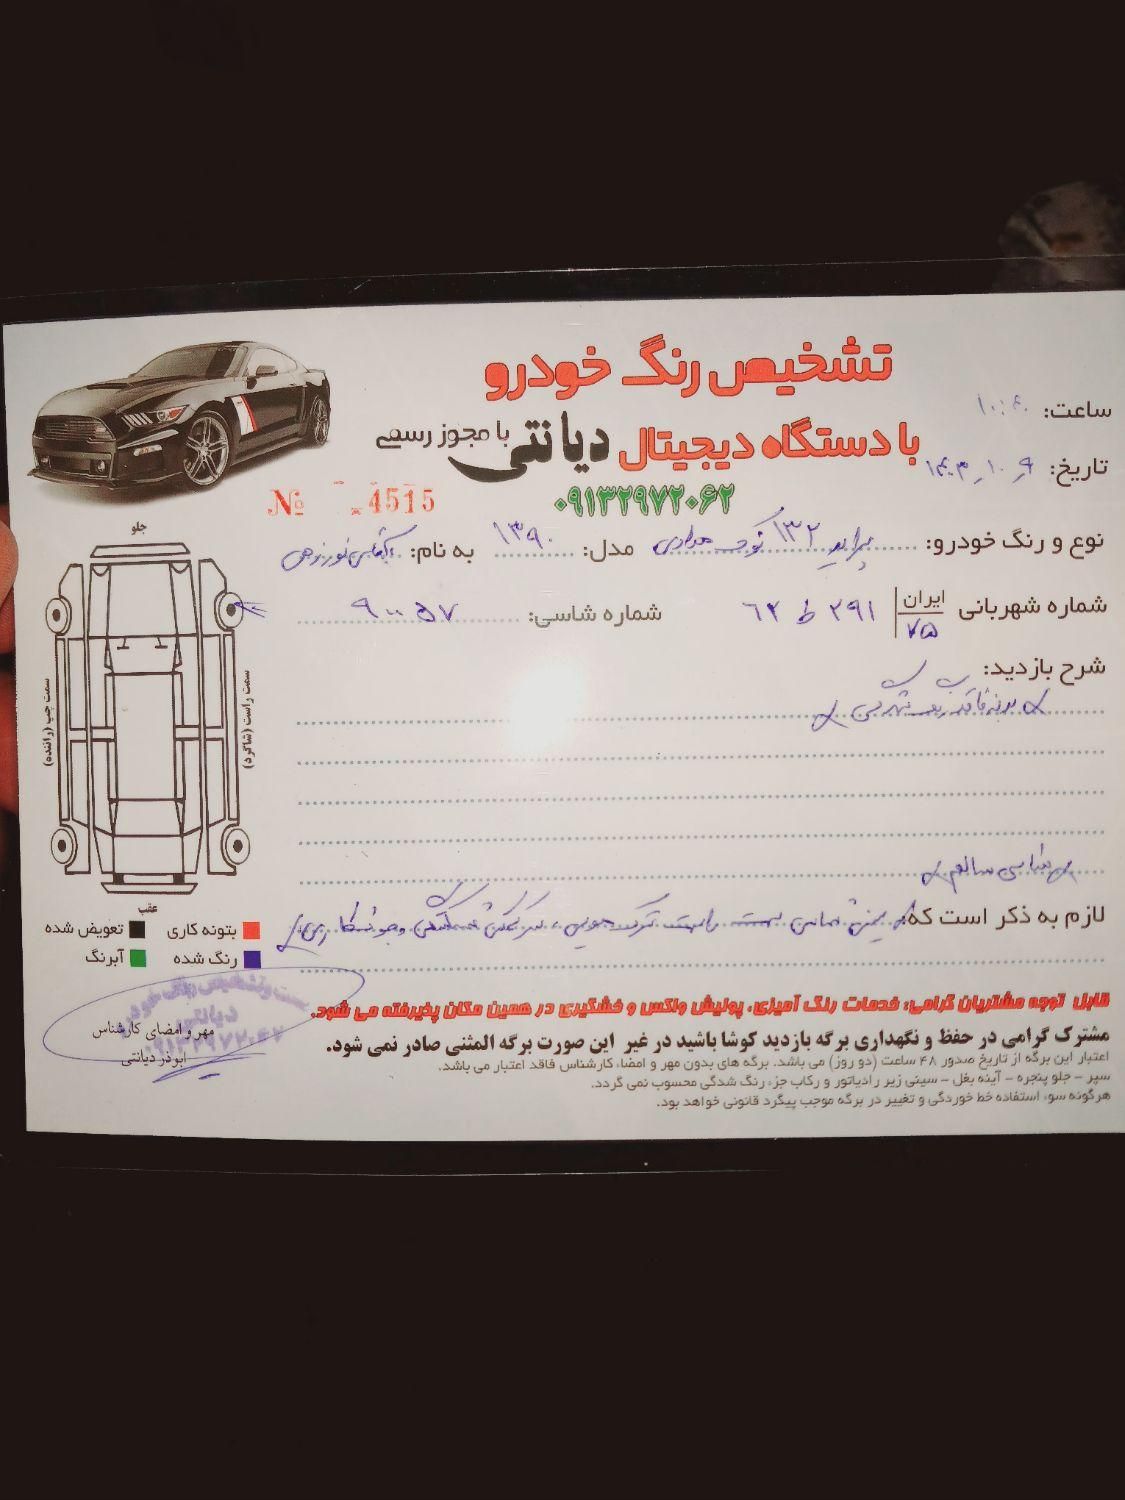 تشخیص رنگ خودرو
با دستگاه دیجیتال دیانتی با مجوز رسمی
۰۹۱۳۲۹۷۲۰۶۲
№ 4515
ساعت:
تاریخ: ۱۴۰۳_۱۰_۹
نوع و رنگ خودرو: پراید ۱۳۲ نوک مدادی مدل: ۱۳۹۰ به نام: آقای
شماره شهربانی ایران ۷۵ ۲۹۱ ط ۶۲ شماره شاسی: ۹۰۰۵۷
شرح بازدید:
بدنه فاقد رنگ شدگی
شاسی سالم
لازم به ذکر است که:
جلو
سمت راست (شاگرد)
سمت چپ (راننده)
عقب
بتونه کاری تعویض شده
رنگ شده آبرنگ
تست و تشخیص رنگ خودرو
دیانتی
۰۹۱۳۲۹۷۲۰۶۲
مهر و امضای کارشناس
ابوذر دیانتی
قابل توجه مشتریان گرامی: خدمات رنگ آمیزی، پولیش واکس و خشگیری در همین مکان پذیرفته می شود.
مشترک گرامی در حفظ و نگهداری برگه بازدید کوشا باشید در غیر این صورت برگه المثنی صادر نمی شود.
اعتبار این برگه از تاریخ صدور ۴۸ ساعت (دو روز) می باشد. برگه های بدون مهر و امضاء کارشناس فاقد اعتبار می باشد.
سپر - جلو پنجره - آینه بغل - سینی زیر رادیاتور و رکاب جزء رنگ شدگی محسوب نمی گردد.
هرگونه سوء استفاده خط خوردگی و تغییر در برگه موجب پیگرد قانونی خواهد بود.